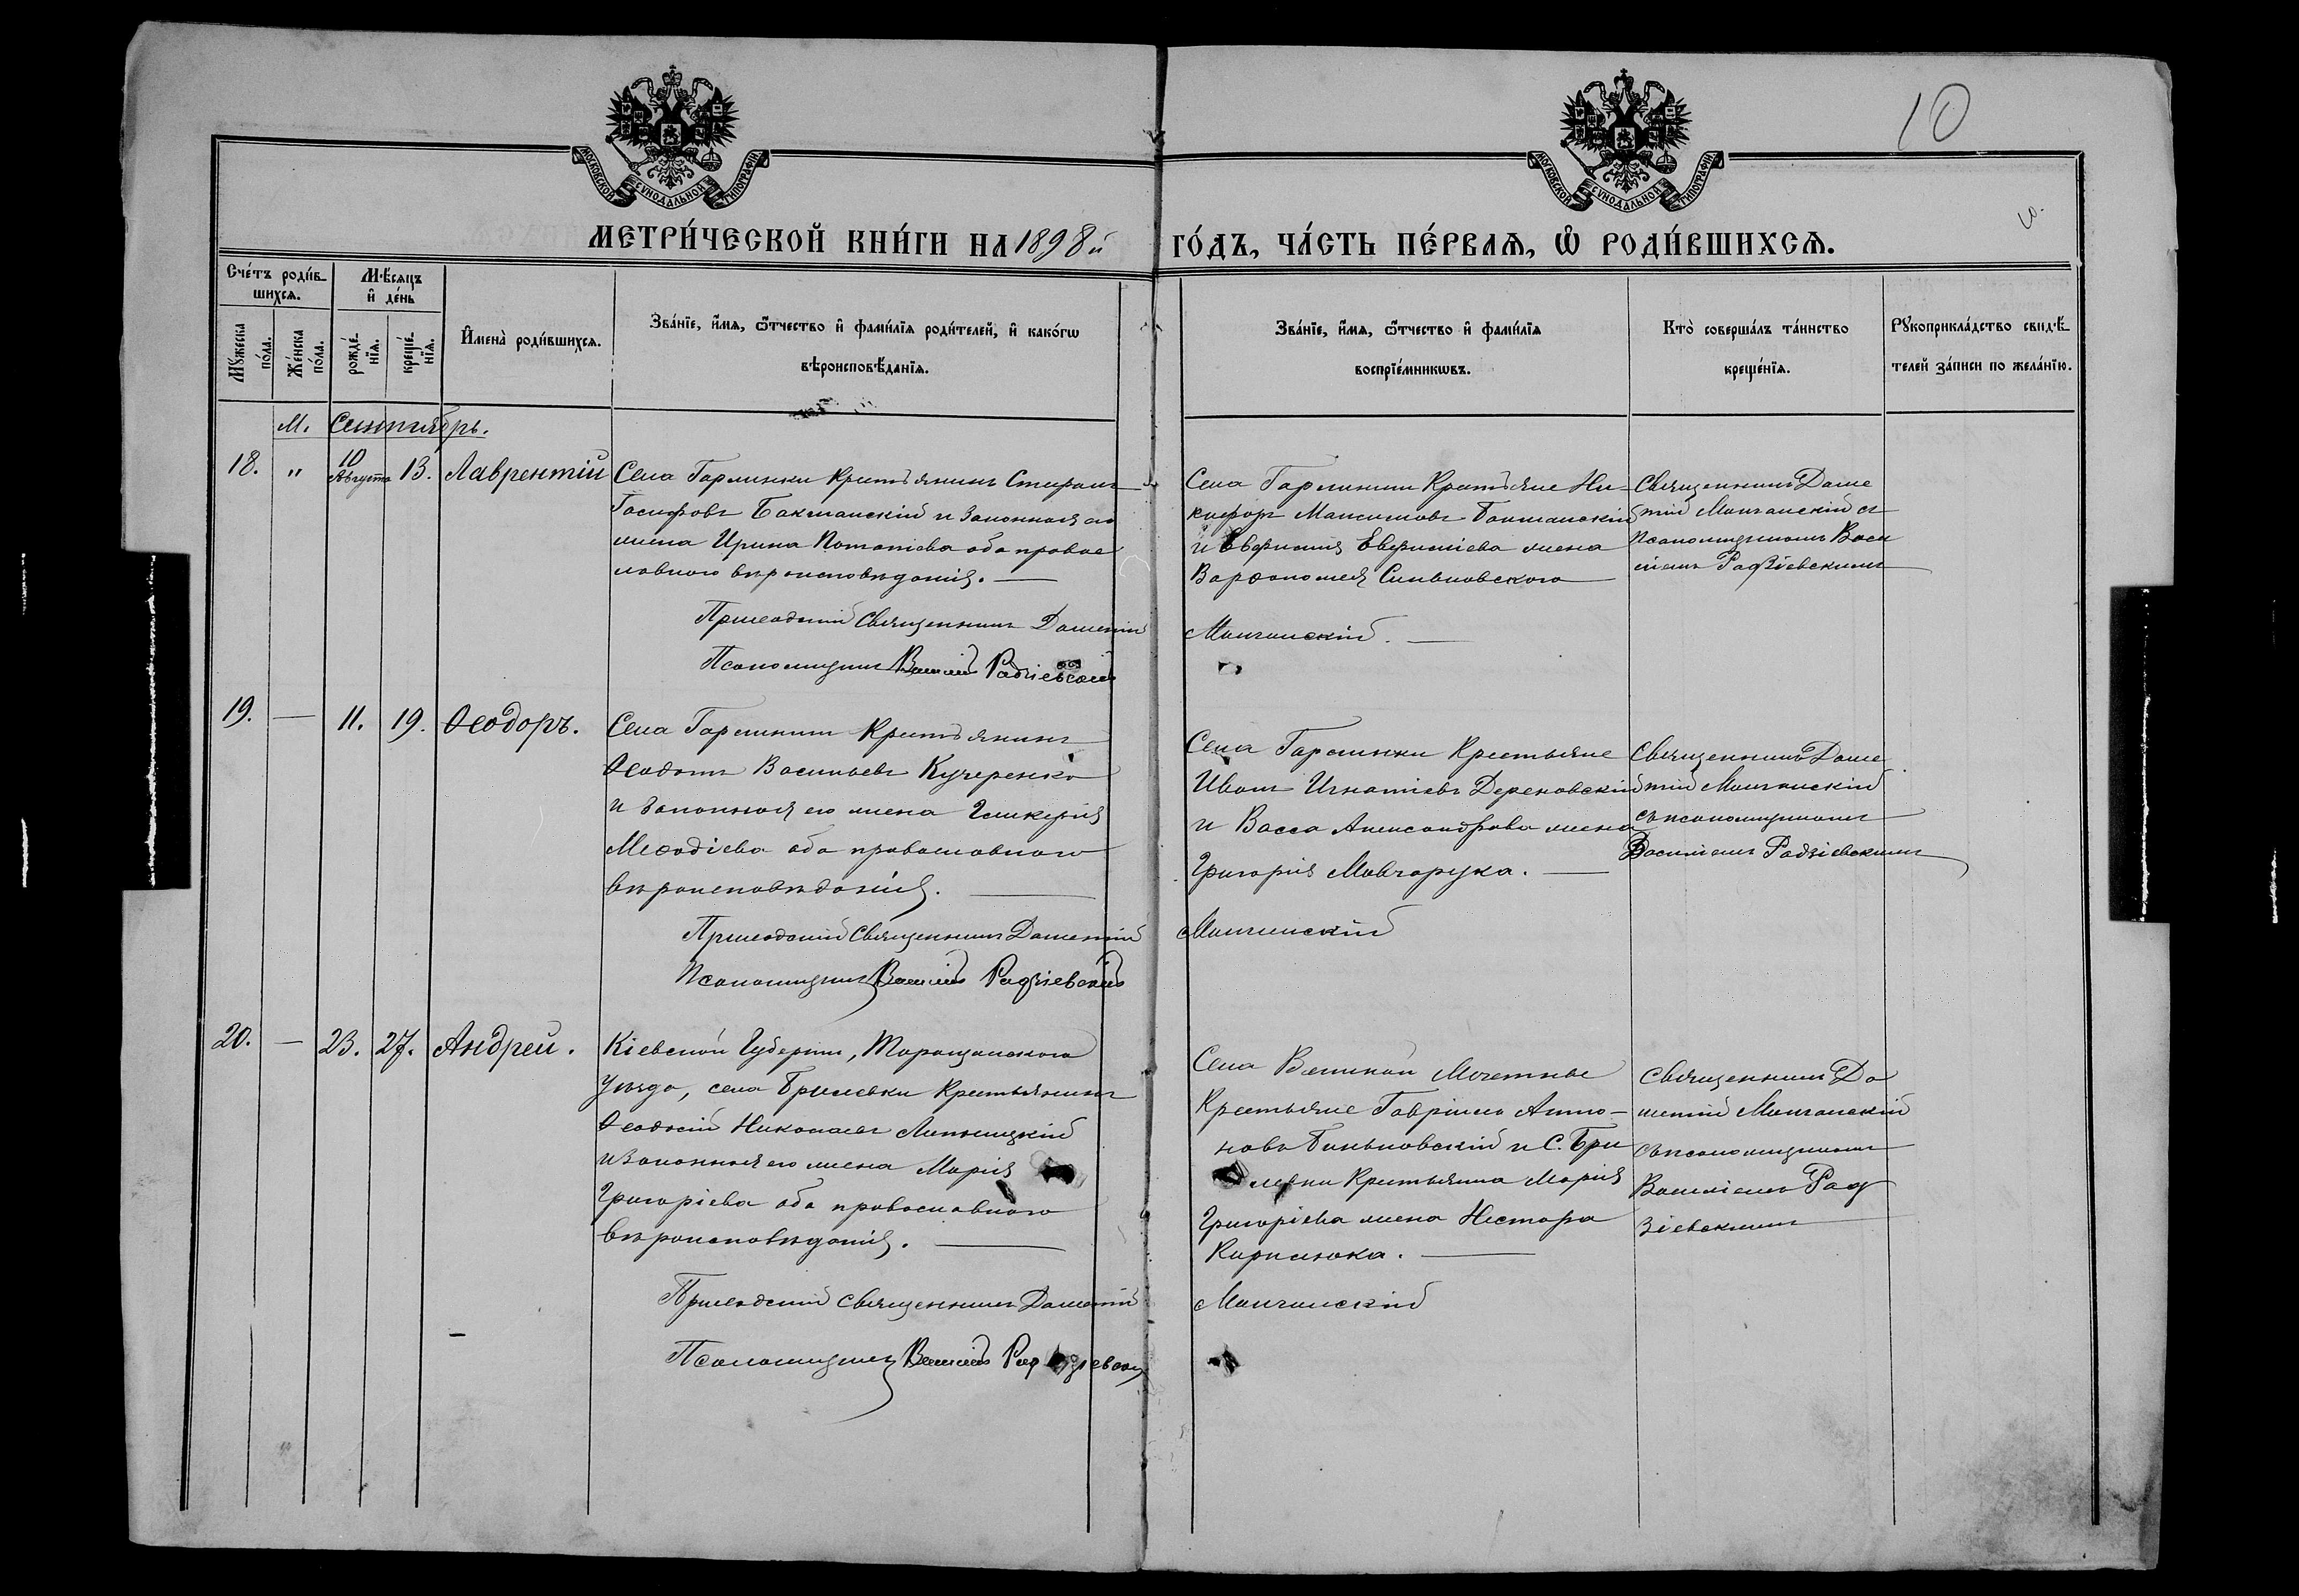 10
МОСКОВСКОЙ СУНОДАЛЬНОЙ ТИПОГРАФІИ
МОСКОВСКОЙ СУНОДАЛЬНОЙ ТИПОГРАФІИ
МЕТРИ́ЧЕСКОЙ КНИ́ГИ НА 1898й ГО́ДЪ, ЧА́СТЬ ПЕ́РВАѦ, Ѡ҆ РОДИ́ВШИХСѦ.
Сче́тъ роди́в-
шихсѧ.
Мꙋжеска по́ла.
Же́нска по́ла.
Мѣ́сѧцъ
и҆ де́нь
рожде́-
нїѧ.
креще́-
нїѧ.
И҆мена̀ роди́вшихсѧ.
Зва́нїе, и҆́мѧ, ѻ҆́тчество и҆ фами́лїѧ роди́телей, и҆ како́гѡ
вѣроисповѣ́данїѧ.
Зва́нїе, и҆́мѧ, ѻ҆́тчество и҆ фами́лїѧ
воспрїе́мникѡвъ.
Кто̀ соверша́лъ та́инство
креще́нїѧ.
Рꙋкоприкла́дство свидѣ́-
телей за́писи по жела́нїю.
М. Сентябрь.
18. " 10 Августа 13. Лаврентій
Села Гарминки Крестьянинъ
Іосифовъ Бакшанскій и законная его
жена Ирина Потапіева оба правос
лавного вѣроисповѣданія. —
Приходскій Священникъ Дометій
Псаломщикъ Василій Радзіевскій
Села Гарминки Крестьяне Ни-
кифоръ Максимовъ Бакшанскій
и Евфимія Евфиміева жена
Варѳоломея Синьковского
Манчинскій. —
Священникъ Доме
тій Манчинскій съ
Псаломщикомъ Васи
ліемъ Радзіевскимъ
19. — 11. 19. Ѳеодоръ.
Села Гарминки Крестьянинъ
Ѳеодотъ Васильевъ Кучеренко
и законная его жена Гликерія
Меѳодіева оба православного
вѣроисповѣданія. —
Приходскій Священникъ Дометій
Псаломщикъ Василій Радзіевскій
Села Гарминки Крестьяне
Иванъ Игнатіевъ Дереновскій
и Васса Александрова жена
Григорія Мовчарука. —
Манчинскій
Священникъ Доме
тій Манчинскій
съ псаломщикомъ
Василіемъ Радзіевскимъ
20. — 23. 27. Андрей.
Кіевской Губерніи, Таращанского
Уѣзда, села Брилевки Крестьянинъ
Ѳеодосій Николаевъ Липницкій
и законная его жена Марія
Григоріева оба православного
вѣроисповѣданія. —
Приходскій Священникъ Дометій
Псаломщикъ Василій Радзіевскій
Села Великой Мочетны
Крестьяне Гавріилъ Анто-
новъ Баньковскій и С. Бри
левки Крестьянка Марія
Григоріева жена Нестора
Кирилюка. —
Манчинскій
Священникъ До
метій Манчинскій
съ псаломщикомъ
Василіемъ Рад
зіевскимъ